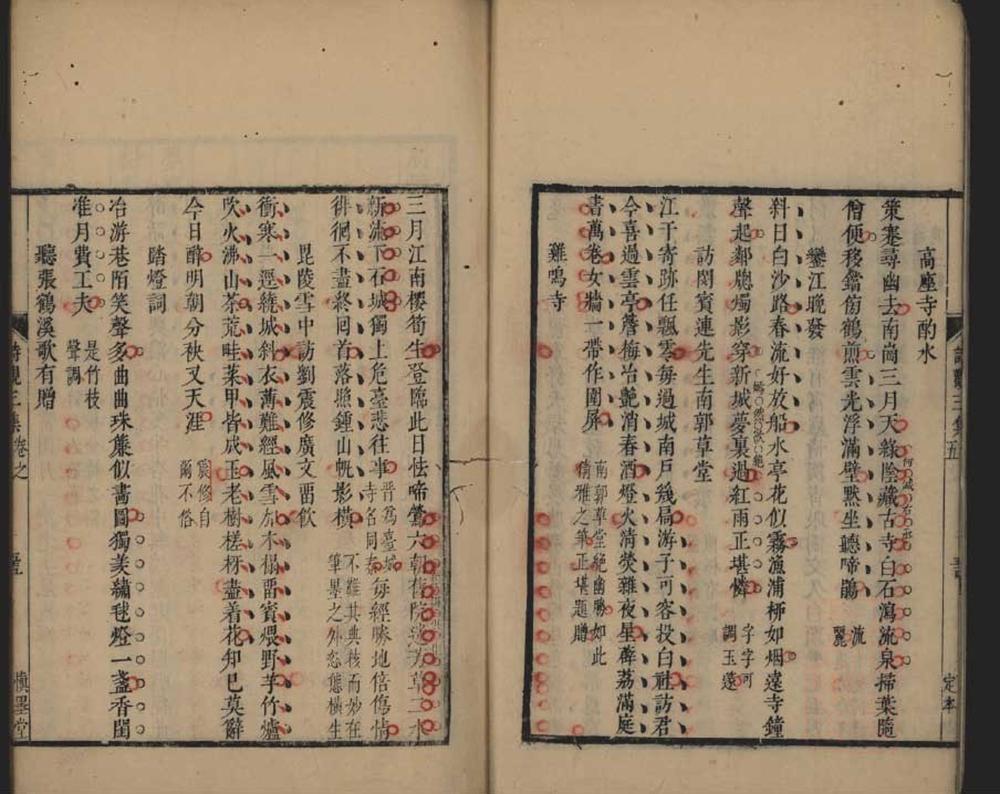 高座寺酌水
策蹇尋幽去南崗三月天綠陰藏古寺白石瀉流泉掃葉隨
僧便移鐺傍鶴煎雲光浮滿壁默坐聽啼鵑
流
麗
鑾江晚發
斜日白沙路春流好放船水亭花似霧漁浦柳如烟遠寺鐘
聲起鄰䑳燭影穿新城夢裏過紅雨正堪憐
字字可
調玉篴
訪閔賓連先生南郭草堂
江干寄跡任飄零每過城南戶幾扃游子可容投白社訪君
今喜過雲亭簷梅冶艷消春酒燈火清熒雜夜星薜荔滿庭
書萬卷女牆一帶作圍屏
南郭草堂絕幽勝如此
精雅之筆正堪題贈
雞鳴寺
三月江南櫻筍生登臨此日怯啼鶯六朝舊院芳草二水
新流下石城獨上危臺悲往事
晋為臺城
寺名同泰
每經勝地倍傷情
徘徊不盡終回首落照鍾山帆影橫
不難其典核而妙在
筆墨之外忽態橫生
毘陵雪中訪劉震修廣文畱飲
衝寒一逕繞城斜衣薄難經風雪加木榻畱賓煨野芋竹爐
吹火沸山茶荒畦菜甲皆成玉老樹槎枒盡着花知已莫辭
今日醉明朝分袂又天涯
震修自
爾不俗
踏燈詞
冶游巷陌笑聲多曲曲珠簾似畫圖獨美繡毬燈一盞香閨
准月費工夫
是竹枝
聲調
聽張鶴溪歌有贈
詩觀三集卷之
慎墨堂
定本